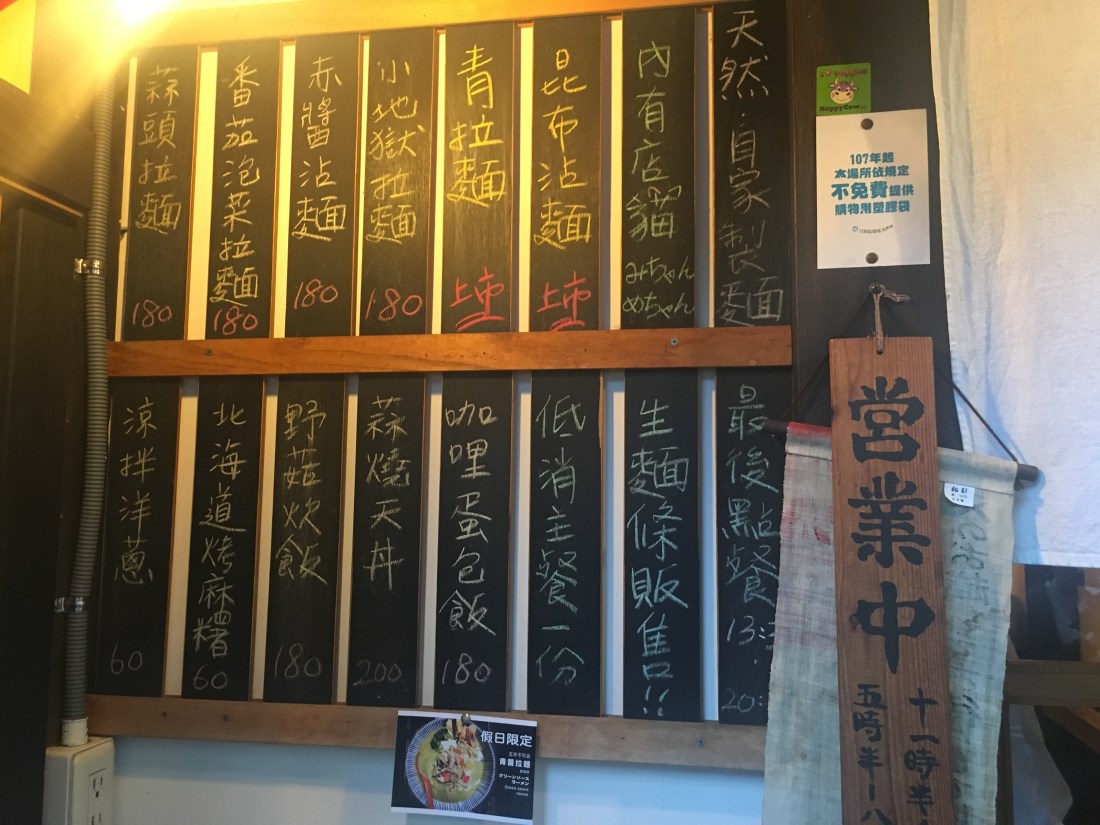 天然·自家製麵
內有店貓
みちゃん
めちゃん
昆布沾麵
上市
青拉麵
上市
小地獄拉麵
180
赤醬沾麵
180
番茄泡菜拉麵
180
蒜頭拉麵
180
最後點餐
13:
20:
生麵條販售!!
低消主餐一份
咖哩蛋包飯
180
蒜燒天丼
200
野菇炊飯
180
北海道烤麻糬
60
涼拌洋蔥
60
HappyCow
107年起
本場所依規定
不免費提供
購物用塑膠袋
営業中
十一時半
五時半-八
假日限定
青醬拉麵
グリーンソース
ラーメン
Green sauce